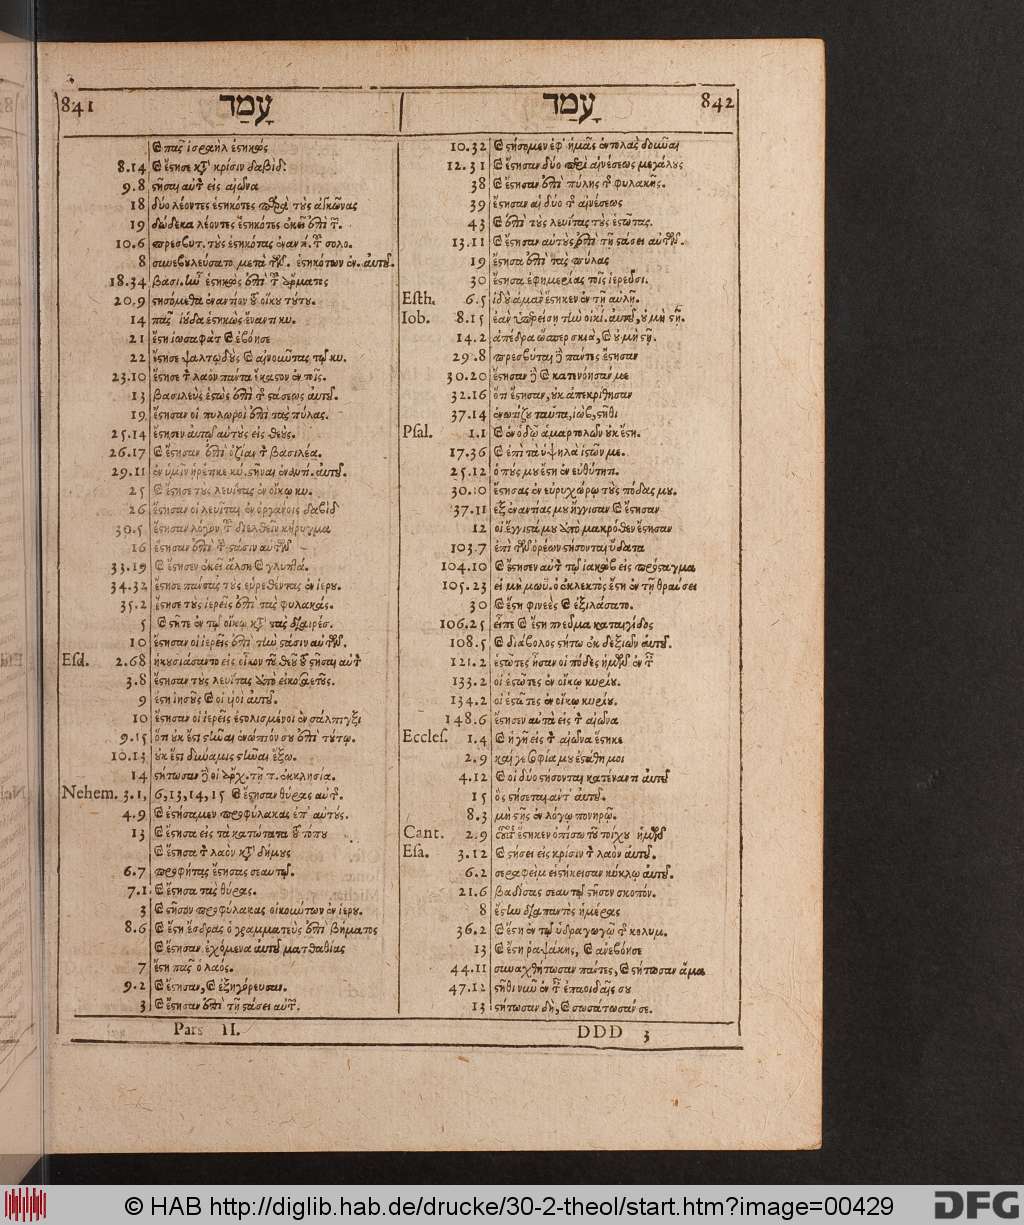 841 עָמַד
καὶ πᾶς ἰσραὴλ ἑστηκὼς
8.14 καὶ ἔστησε κτ' κρίσιν δαβίδ.
9.8 στῆσαι αὐτ εἰς αἰῶνα
18 δύο λέοντες ἑστηκότες παρὰ τοὺς ἀγκῶνας
19 δώδεκα λέοντες ἑστηκότες ἐκεῖ ἐπὶ τ.
10.6 πρεσβυτ. τοὺς ἑστηκότας ἐναντ. τ σολο.
8 συνεβουλεύσατο μετὰ τῶν. ἑστηκότων ἐν. αὐτοῦ.
18.34 βασι. ἦν ἑστηκὼς ἐπὶ τ ἅρματος
20.9 στησόμεθα ἐναντίον τοῦ οἴκου τούτου.
14 πᾶς ἰούδα ἑστηκὼς ἔναντι κυ.
21 ἔστη ἰωσαφὰτ καὶ ἐβόησε
22 ἔστησε ψαλτῳδοὺς καὶ αἰνοῦντας τῷ κυ.
23.10 ἔστησε τ λαὸν πάντα ἕκαστον ἐν τοῖς.
13 βασιλεὺς ἑστὼς ἐπὶ τ στάσεως αὐτοῦ.
19 ἔστησαν οἱ πυλωροὶ ἐπὶ τὰς πύλας.
25.14 ἔστησεν αὐτῷ αὐτοὺς εἰς θεούς.
26.17 καὶ ἔστησαν ἐπὶ ὀζίαν τ βασιλέα.
29.11 ἐν ὑμῖν ᾑρέτικε κύ. στῆναι ἐναντί. αὐτοῦ.
25 καὶ ἔστησε τοὺς λευίτας ἐν οἴκῳ κυ.
26 ἔστησαν οἱ λευῖται ἐν ὀργάνοις δαβίδ
30.5 ἔστησαν λόγον τ διελθεῖν κήρυγμα
16 ἔστησαν ἐπὶ τ στάσιν αὐτῶν
33.19 καὶ ἔστησεν ἐκεῖ ἄλση καὶ γλυπτά.
34.32 ἔστησε πάντας τοὺς εὑρεθέντας ἐν ἱερου.
35.2 ἔστησε τοὺς ἱερεῖς ἐπὶ τὰς φυλακάς.
5 καὶ στῆτε ἐν τῷ οἴκῳ κτ' τὰς διαιρέσ.
10 ἔστησαν οἱ ἱερεῖς ἐπὶ τὴν στάσιν αὐτῶν.
Esd. 2.68 ἡκουσιάσαντο εἰς οἶκον τοῦ θεοῦ τοῦ στῆσαι αὐτ
3.8 ἔστησαν τοὺς λευίτας ἀπὸ εἰκοσαετοῦς.
9 ἔστη ἰησοῦς καὶ οἱ υἱοὶ αὐτοῦ.
10 ἔστησαν οἱ ἱερεῖς ἐστολισμένοι ἐν σάλπιγξι
9.15 ὅτι οὐκ ἔστι στῆναι ἐνώπιόν σου ἐπὶ τούτῳ.
10.13 οὐκ ἔστι δύναμις στῆναι ἔξω.
14 στήτωσαν δὴ οἱ ἄρχ. τῇ π. ἐκκλησίᾳ.
Nehem. 3.1, 6,13,14,15 καὶ ἔστησαν θύρας αὐτ.
4.9 καὶ ἐστήσαμεν προφύλακας ἐπ' αὐτούς.
13 καὶ ἔστησα εἰς τὰ κατώτατα τοῦ τόπου
καὶ ἔστησα τ λαὸν κτ' δήμους
6.7 προφήτας ἔστησας σεαυτῷ.
7.1 καὶ ἔστησα τὰς θύρας.
3 καὶ στῆσον προφύλακας οἰκούντων ἐν ἱερου.
8.6 καὶ ἔστη ἔσδρας ὁ γραμματεὺς ἐπὶ βήματος
καὶ ἔστησαν ἐχόμενα αὐτοῦ ματθαθίας
7 ἔστη πᾶς ὁ λαός.
9.2 καὶ ἔστησαν, καὶ ἐξηγόρευσαν.
3 καὶ ἔστησαν ἐπὶ τῇ στάσει αὐτ.
Pars II.
עָמַד 842
10.32 καὶ στήσομεν ἐφ' ἡμᾶς ἐντολὰς δοῦναι
12.31 καὶ ἔστησαν δύο περὶ αἰνέσεως μεγάλους
38 καὶ ἔστησαν ἐπὶ πύλης τ φυλακῆς.
39 ἔστησαν αἱ δύο τ αἰνέσεως
43 καὶ ἐπὶ τοὺς λευίτας τοὺς ἑστῶτας.
13.11 καὶ ἔστησαν αὐτοὺς ἐπὶ τῇ στάσει αὐτῶν.
19 ἔστησα ἐπὶ τὰς πύλας
30 ἔστησα ἐφημερίας τοῖς ἱερεῦσι.
Esth. 6.5 ἰδοὺ ἀμαν ἕστηκεν ἐν τῇ αὐλῇ.
Iob. 8.15 ἐὰν ὑπερείσῃ τὴν οἰκί. αὐτοῦ, οὐ μὴ στῇ.
14.2 ἀπέδρα ὥσπερ σκιὰ, καὶ οὐ μὴ στῇ.
29.8 πρεσβύται δὲ πάντες ἔστησαν
30.20 ἔστησαν δὲ καὶ κατενόησάν με
32.16 ὅτι ἔστησαν, οὐκ ἀπεκρίθησαν
37.14 ἐνωτίζου ταῦτα, ἰὼβ, στῆθι
Psal. 1.1 καὶ ἐν ὁδῷ ἁμαρτωλῶν οὐκ ἔστη.
17.36 καὶ ἐπὶ τὰ ὑψηλὰ ἱστῶν με.
25.12 ὁ πούς μου ἔστη ἐν εὐθύτητι.
30.10 ἔστησας ἐν εὐρυχώρῳ τοὺς πόδας μου.
37.11 ἐξ ἐναντίας μου ἤγγισαν καὶ ἔστησαν
12 οἱ ἔγγιστά μου ἀπὸ μακρόθεν ἔστησαν
103.7 ἐπὶ τῶν ὀρέων στήσονται ὕδατα
104.10 καὶ ἔστησεν αὐτ τῷ ἰακὼβ εἰς πρόσταγμα
105.23 εἰ μὴ μωϋ. ὁ ἐκλεκτὸς ἔστη ἐν τῇ θραύσει
30 καὶ ἔστη φινεὲς καὶ ἐξιλάσατο.
106.25 εἶπε καὶ ἔστη πνεῦμα καταιγίδος
108.5 καὶ διάβολος στήτω ἐκ δεξιῶν αὐτοῦ.
121.2 ἑστῶτες ἦσαν οἱ πόδες ἡμῶν ἐν τ
133.2 οἱ ἑστῶτες ἐν οἴκῳ κυρίου.
134.2 οἱ ἑστῶτες ἐν οἴκῳ κυρίου.
148.6 ἔστησεν αὐτὰ εἰς τ αἰῶνα
Eccles. 1.4 καὶ ἡ γῆ εἰς τ αἰῶνα ἕστηκε
2.9 καί γε σοφία μου ἐστάθη μοι
4.12 καὶ οἱ δύο στήσονται κατέναντι αὐτοῦ
15 ὃς στήσεται ἀντ' αὐτοῦ.
8.3 μὴ στῇς ἐν λόγῳ πονηρῷ.
Cant. 2.9 οὗτος ἕστηκεν ὀπίσω τοῦ τοίχου ἡμῶν
Esa. 3.12 καὶ στήσει εἰς κρίσιν τ λαὸν αὐτοῦ.
6.2 σεραφεὶμ εἱστήκεισαν κύκλῳ αὐτοῦ.
21.6 βαδίσας σεαυτῷ στῆσον σκοπόν.
8 ἔστην διαπαντὸς ἡμέρας
36.2 καὶ ἔστη ἐν τῷ ὑδραγωγῷ τ κολυμ.
13 καὶ ἔστη ῥαψάκης, καὶ ἀνεβόησε
44.11 συναχθήτωσαν πάντες, καὶ στήτωσαν ἅμα
47.12 στῆθι νῦν ἐν τ ἐπαοιδαῖς σου
13 στήτωσαν δὴ, καὶ σωσάτωσάν σε.
DDD 3
© HAB http://diglib.hab.de/drucke/30-2-theol/start.htm?image=00429
DFG